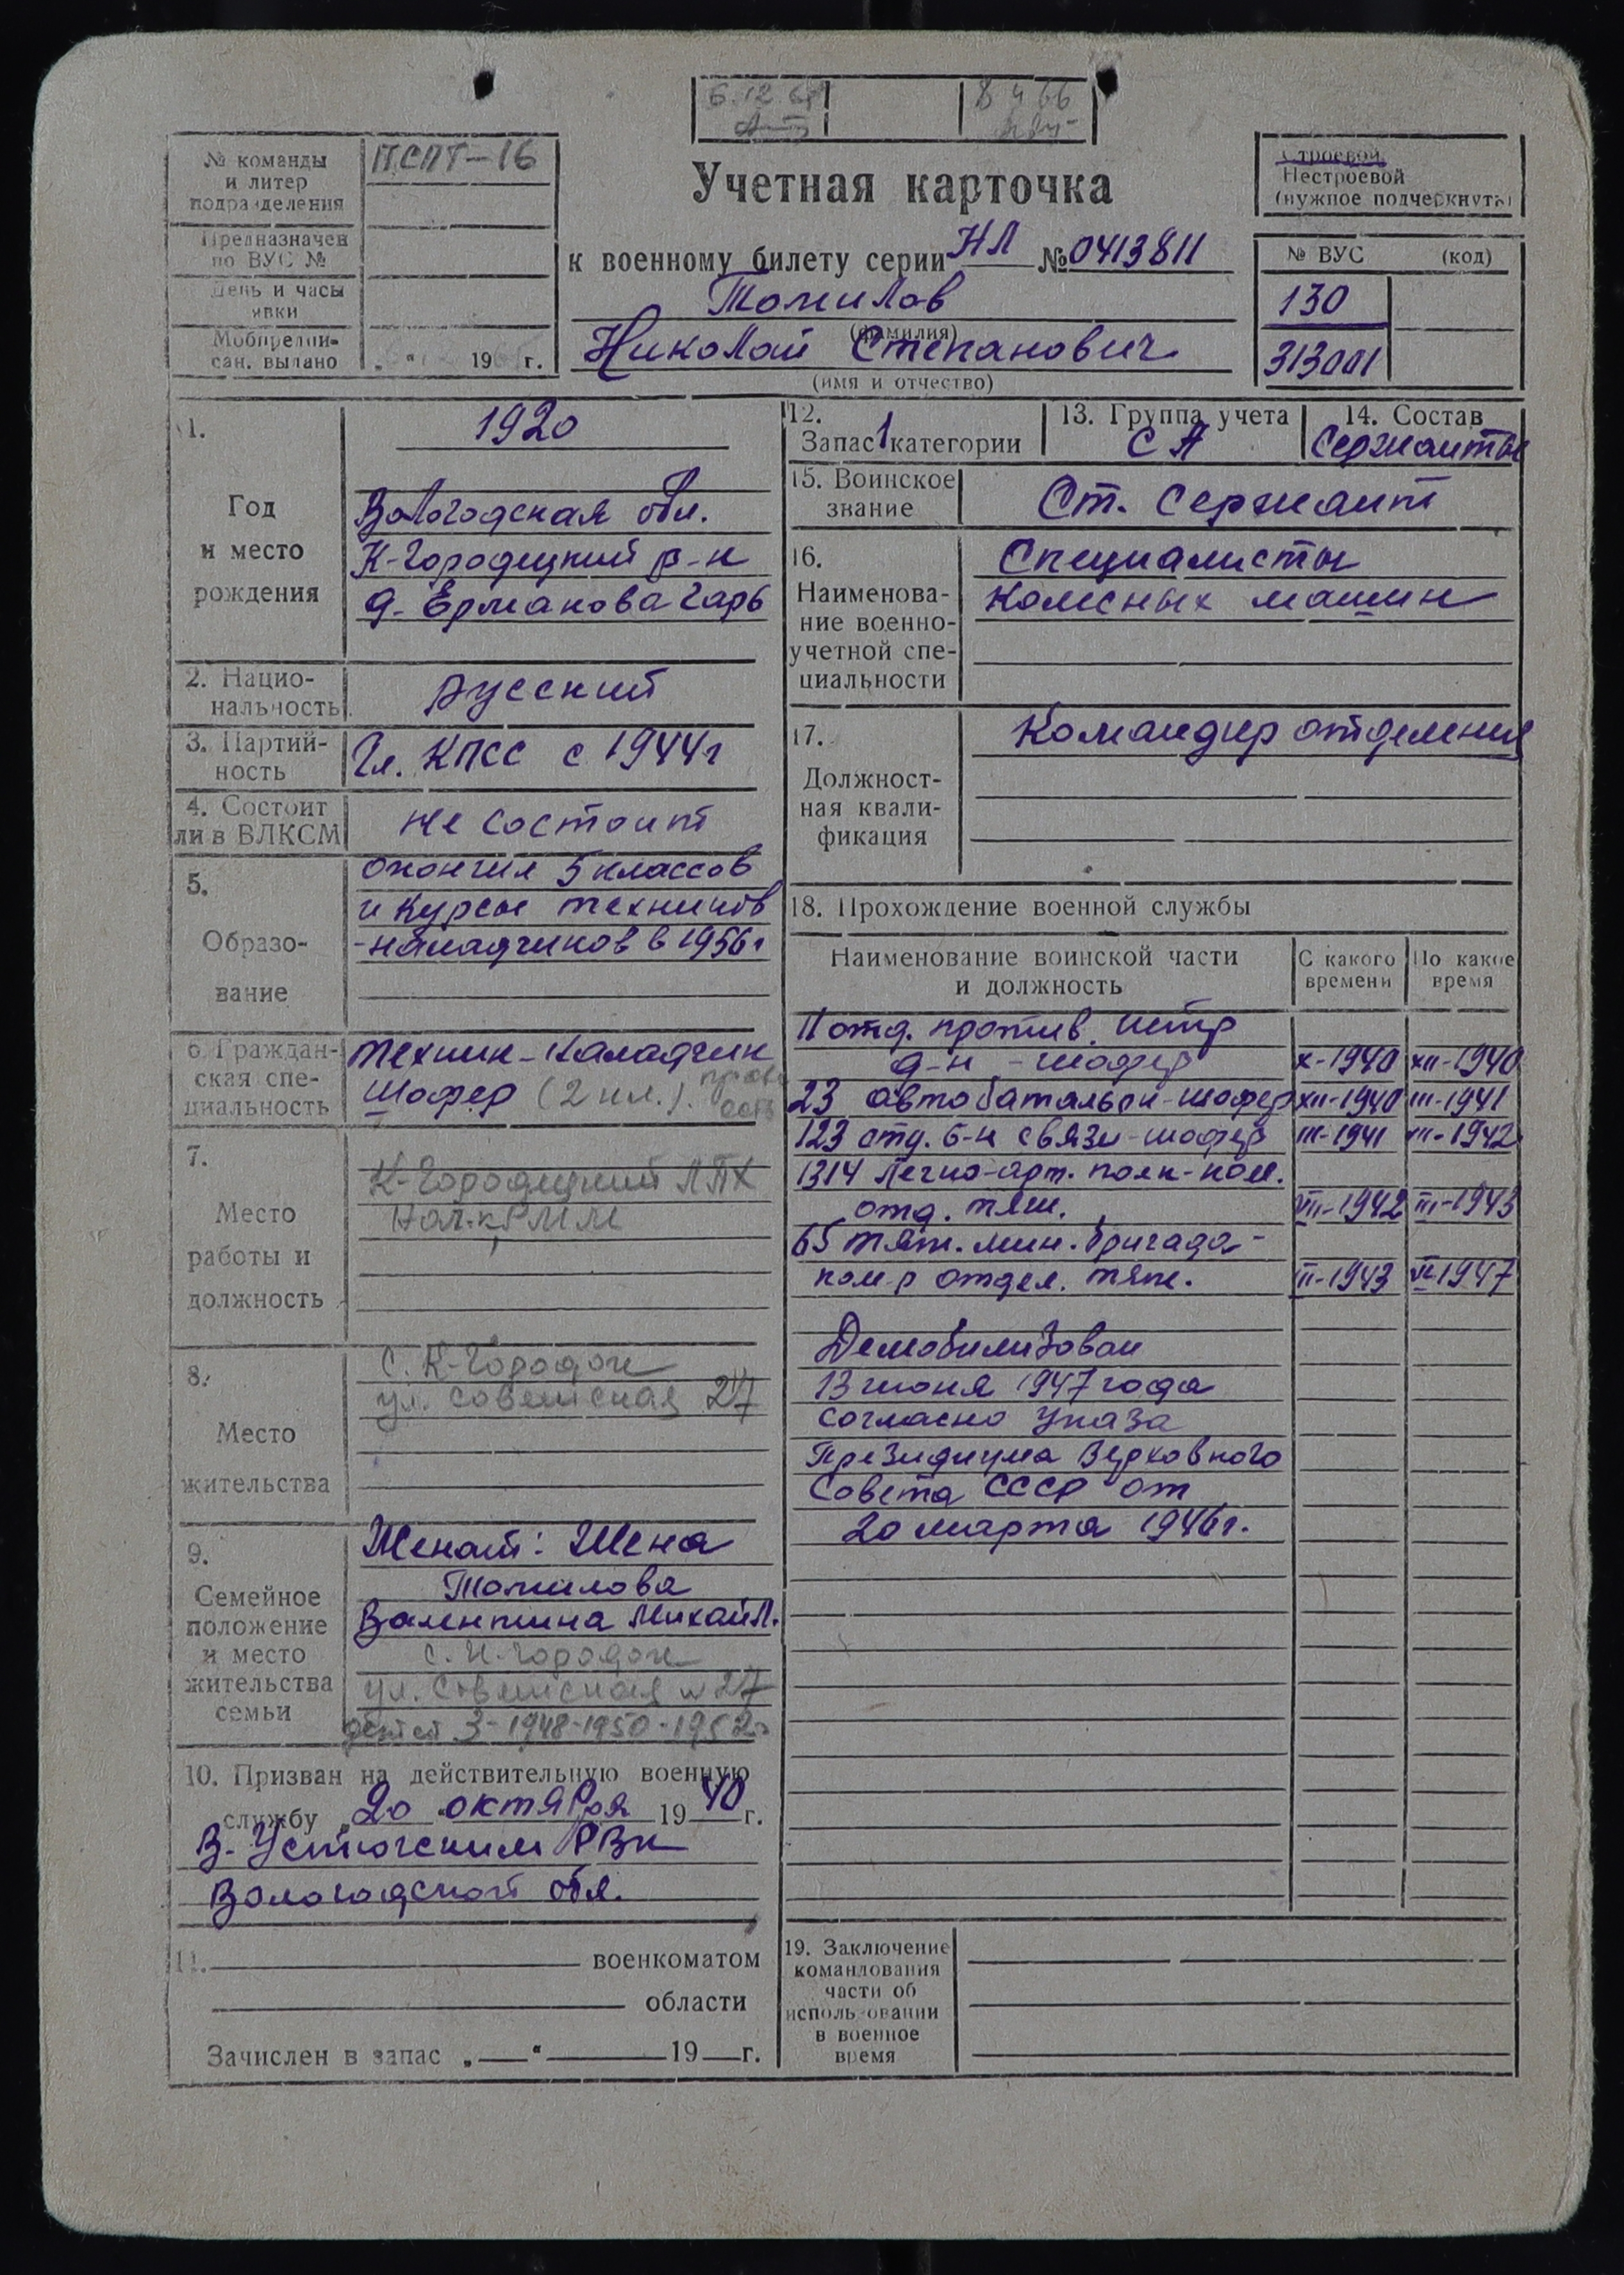 6.12.68
8 4 66
№ команды
и литер
подразделения
ПСПТ-16
Предназначен
по ВУС №
День и часы
явки
Мобпредпи-
сан. выдано
„ “ 196 г.
Учетная карточка
к военному билету серии НЛ № 0413811
Томилов
(фамилия)
Николай Степанович
(имя и отчество)
Строевой
Нестроевой
(нужное подчеркнуть)
№ ВУС (код)
130
313001
1.
Год
и место
рождения
1920
Вологодская обл.
К-Городецкий р-н
д. Ермакова Гарь
2. Нацио-
нальность
русский
3. Партий-
ность
Чл. КПСС с 1944г
4. Состоит
ли в ВЛКСМ
не состоит
5.
Образо-
вание
окончил 5 классов
и курсы техников
-наладчиков в 1956г
6. Граждан-
ская спе-
циальность
техник-наладчик
шофер (2 кл.).
7.
Место
работы и
должность
К-Городецкий ЛПХ
нач-к РММ
8.
Место
жительства
с. К-Городок
ул. Советская 27
9.
Семейное
положение
и место
жительства
семьи
Женат: Жена
Томилова
Валентина Михайл.
с. К-Городок
ул. Советская № 27
детей 3-1948-1950-1952г
10. Призван на действительную военную
службу „20 “ октября 1940 г.
В-Устюгским РВК
Вологодской обл.
11. военкоматом
области
Зачислен в запас „ “ 19 г.
12.
Запас 1 категории
13. Группа учета
СА
14. Состав
Сержанты
15. Воинское
звание
Ст. сержант
16.
Наименова-
ние военно-
учетной спе-
циальности
Специалисты
колесных машин
17.
Должност-
ная квали-
фикация
Командир отделения
18. Прохождение военной службы
Наименование воинской части
и должность
С какого
времени
По какое
время
11 отд. против. истр
д-н - шофер X-1940 XII-1940
23 автобатальон-шофер XII-1940 III-1941
123 отд. б-н связи-шофер III-1941 VII-1942
1314 легко-арт. полк-ком.
отд. тяги. VII-1942 III-1943
65 тяж. мин. бригада-
ком-р отдел. тяги. II-1943 VI-1947
Демобилизован
13 июня 1947 года
согласно указа
Президиума Верховного
Совета СССР от
20 марта 1946г.
19. Заключение
командования
части об
использовании
в военное
время